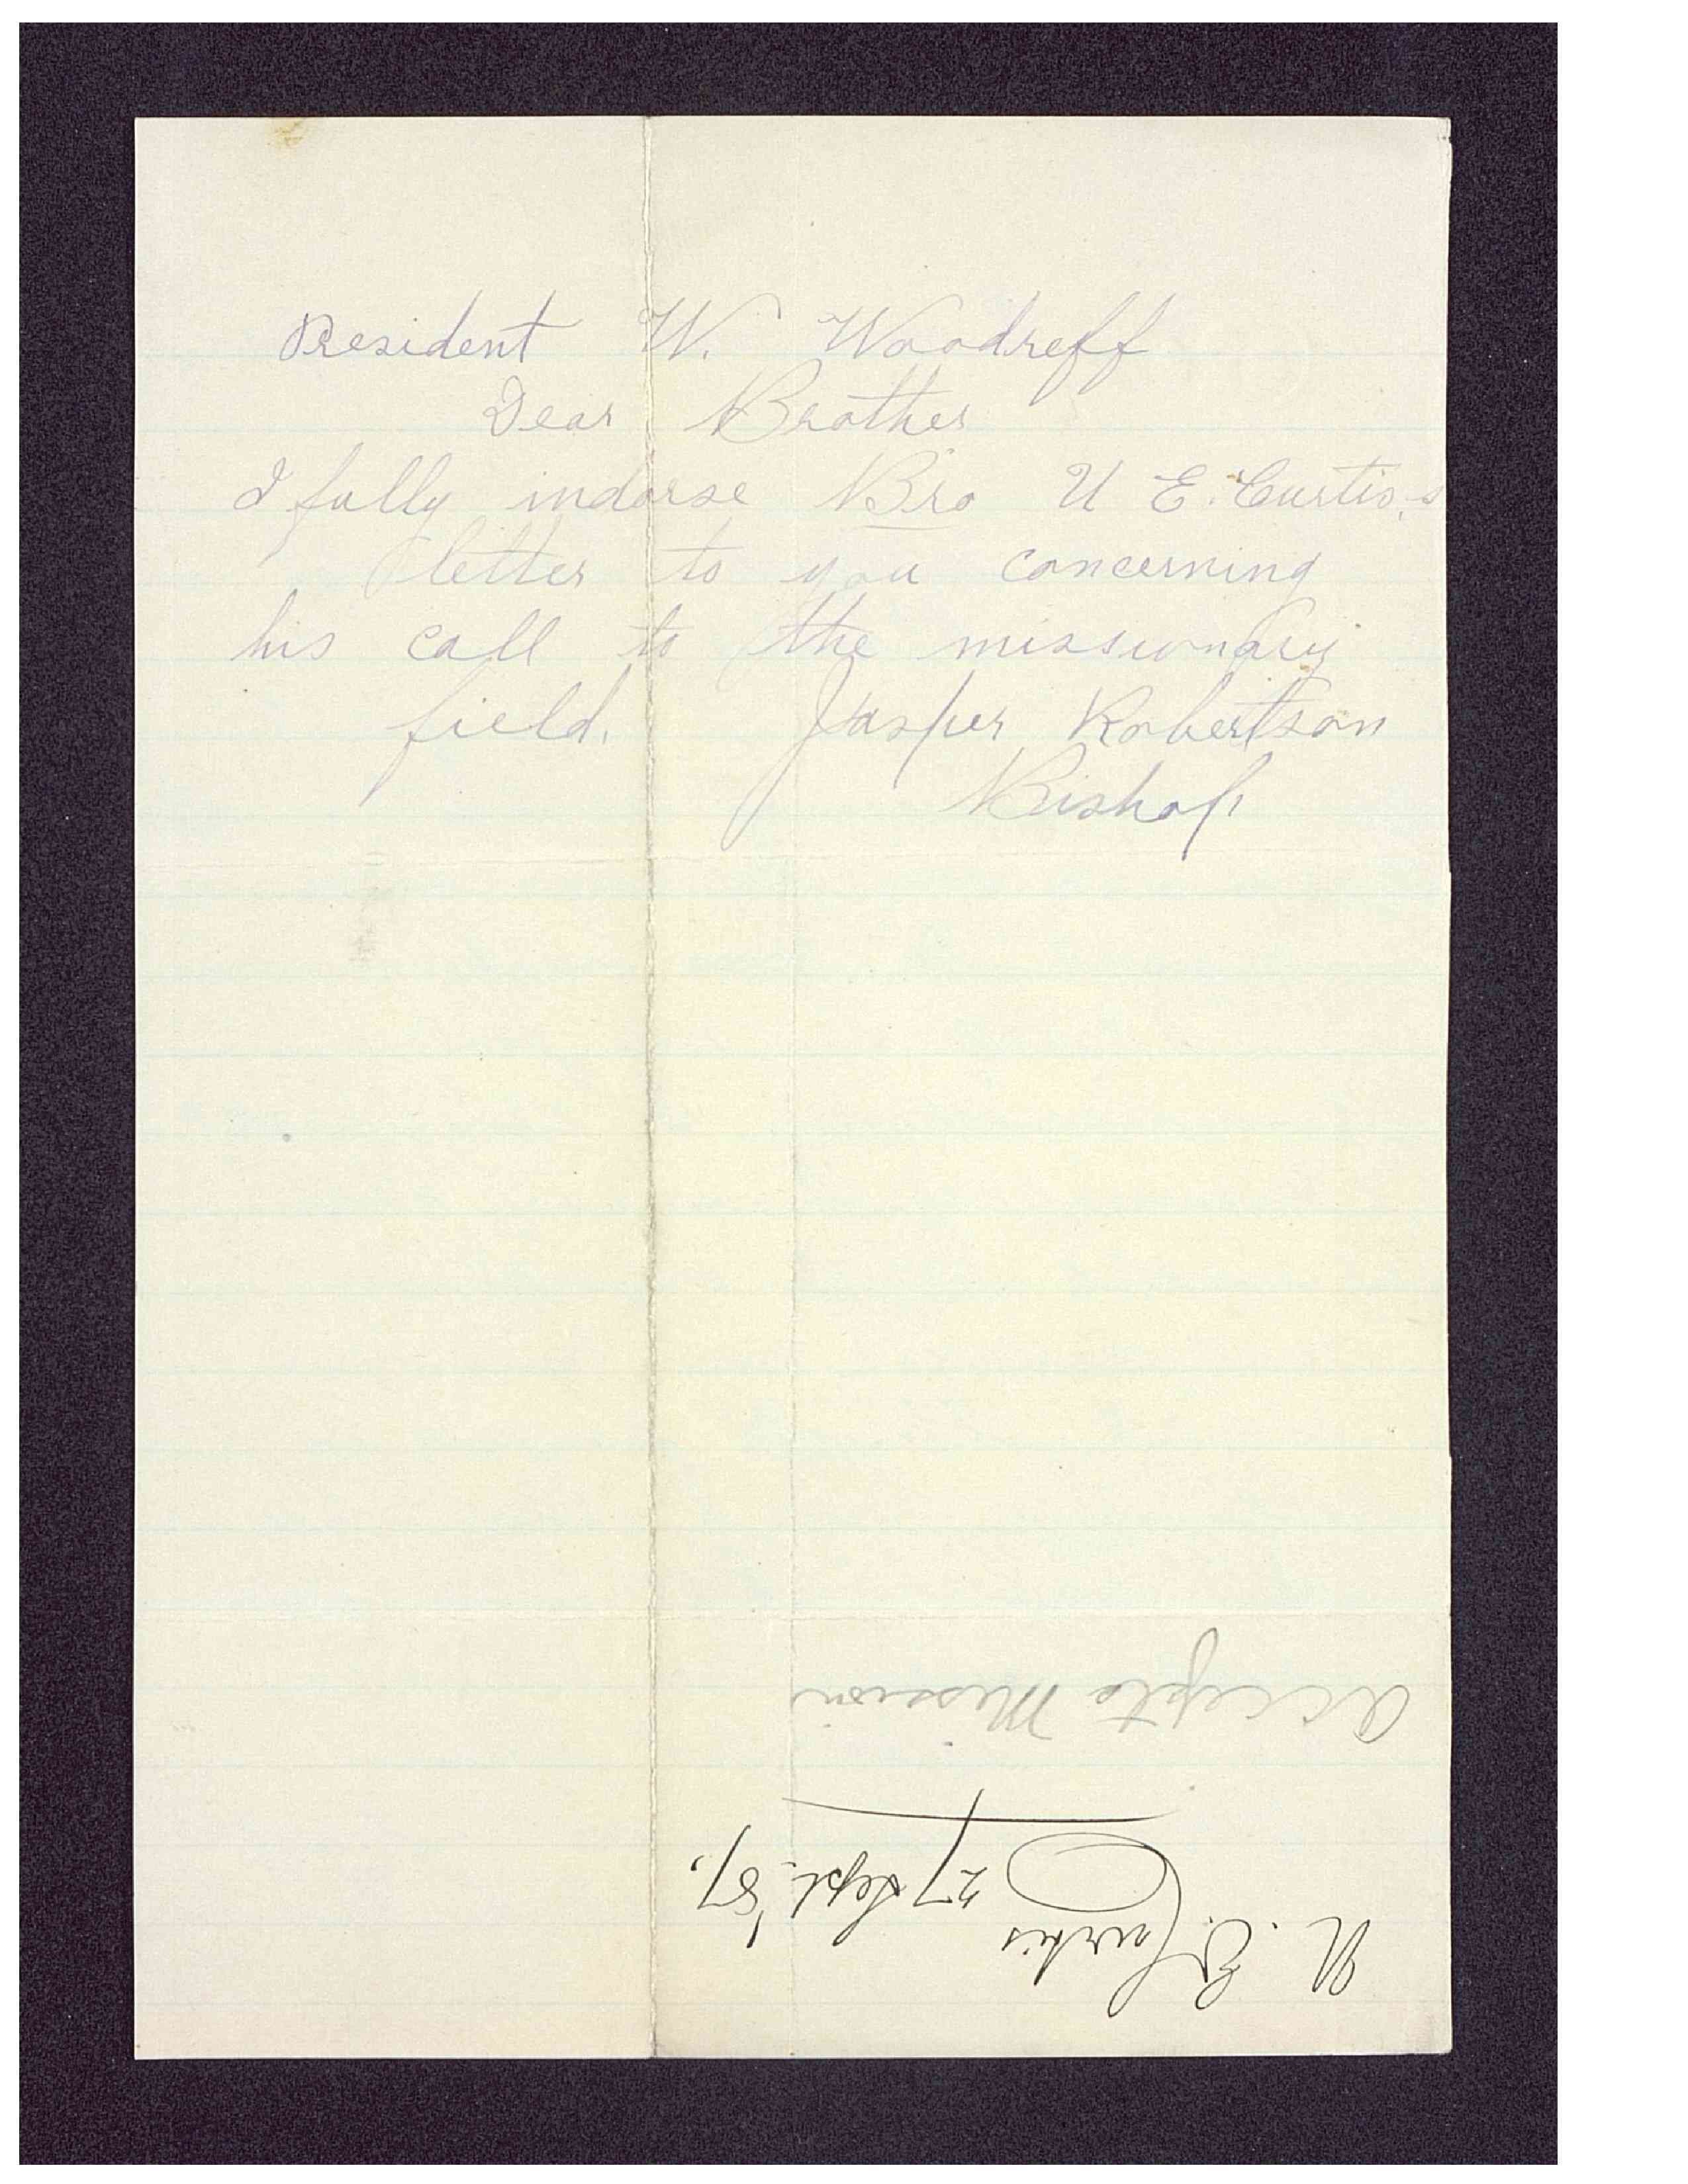 President W. Woodreff
Dear Brother
I fully indorse Bro U E. Curtis,s
letter to you concerning
his call to the missionary
field. Jasper Robertson
Bishop
U. E. Curtis
27 Sept. '87.
Accepts Mission